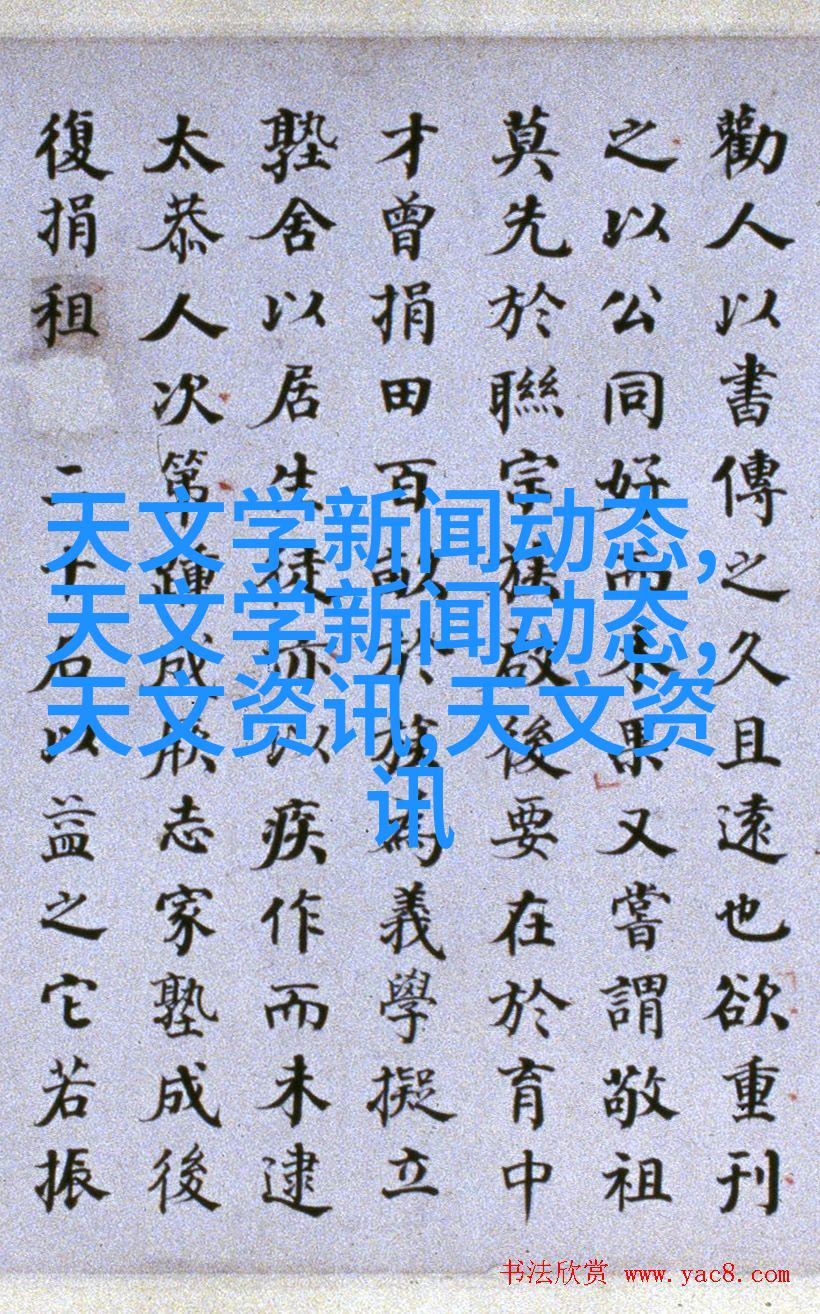 勸人以書傳之久且遠也欲重刊
之以公同好而未果又嘗謂敬祖
莫先於聯宗族啟後要在於育中
才曾捐田百畝於族為義學擬立
塾舍以居生徒亦以疾作而未逮
太恭人次第踵成厥志家塾成後
復捐租二千石以益之它若振
天文学新闻动态,
天文学新闻动态,
天文资讯,天文资
讯
书法欣赏 www.yac8.com